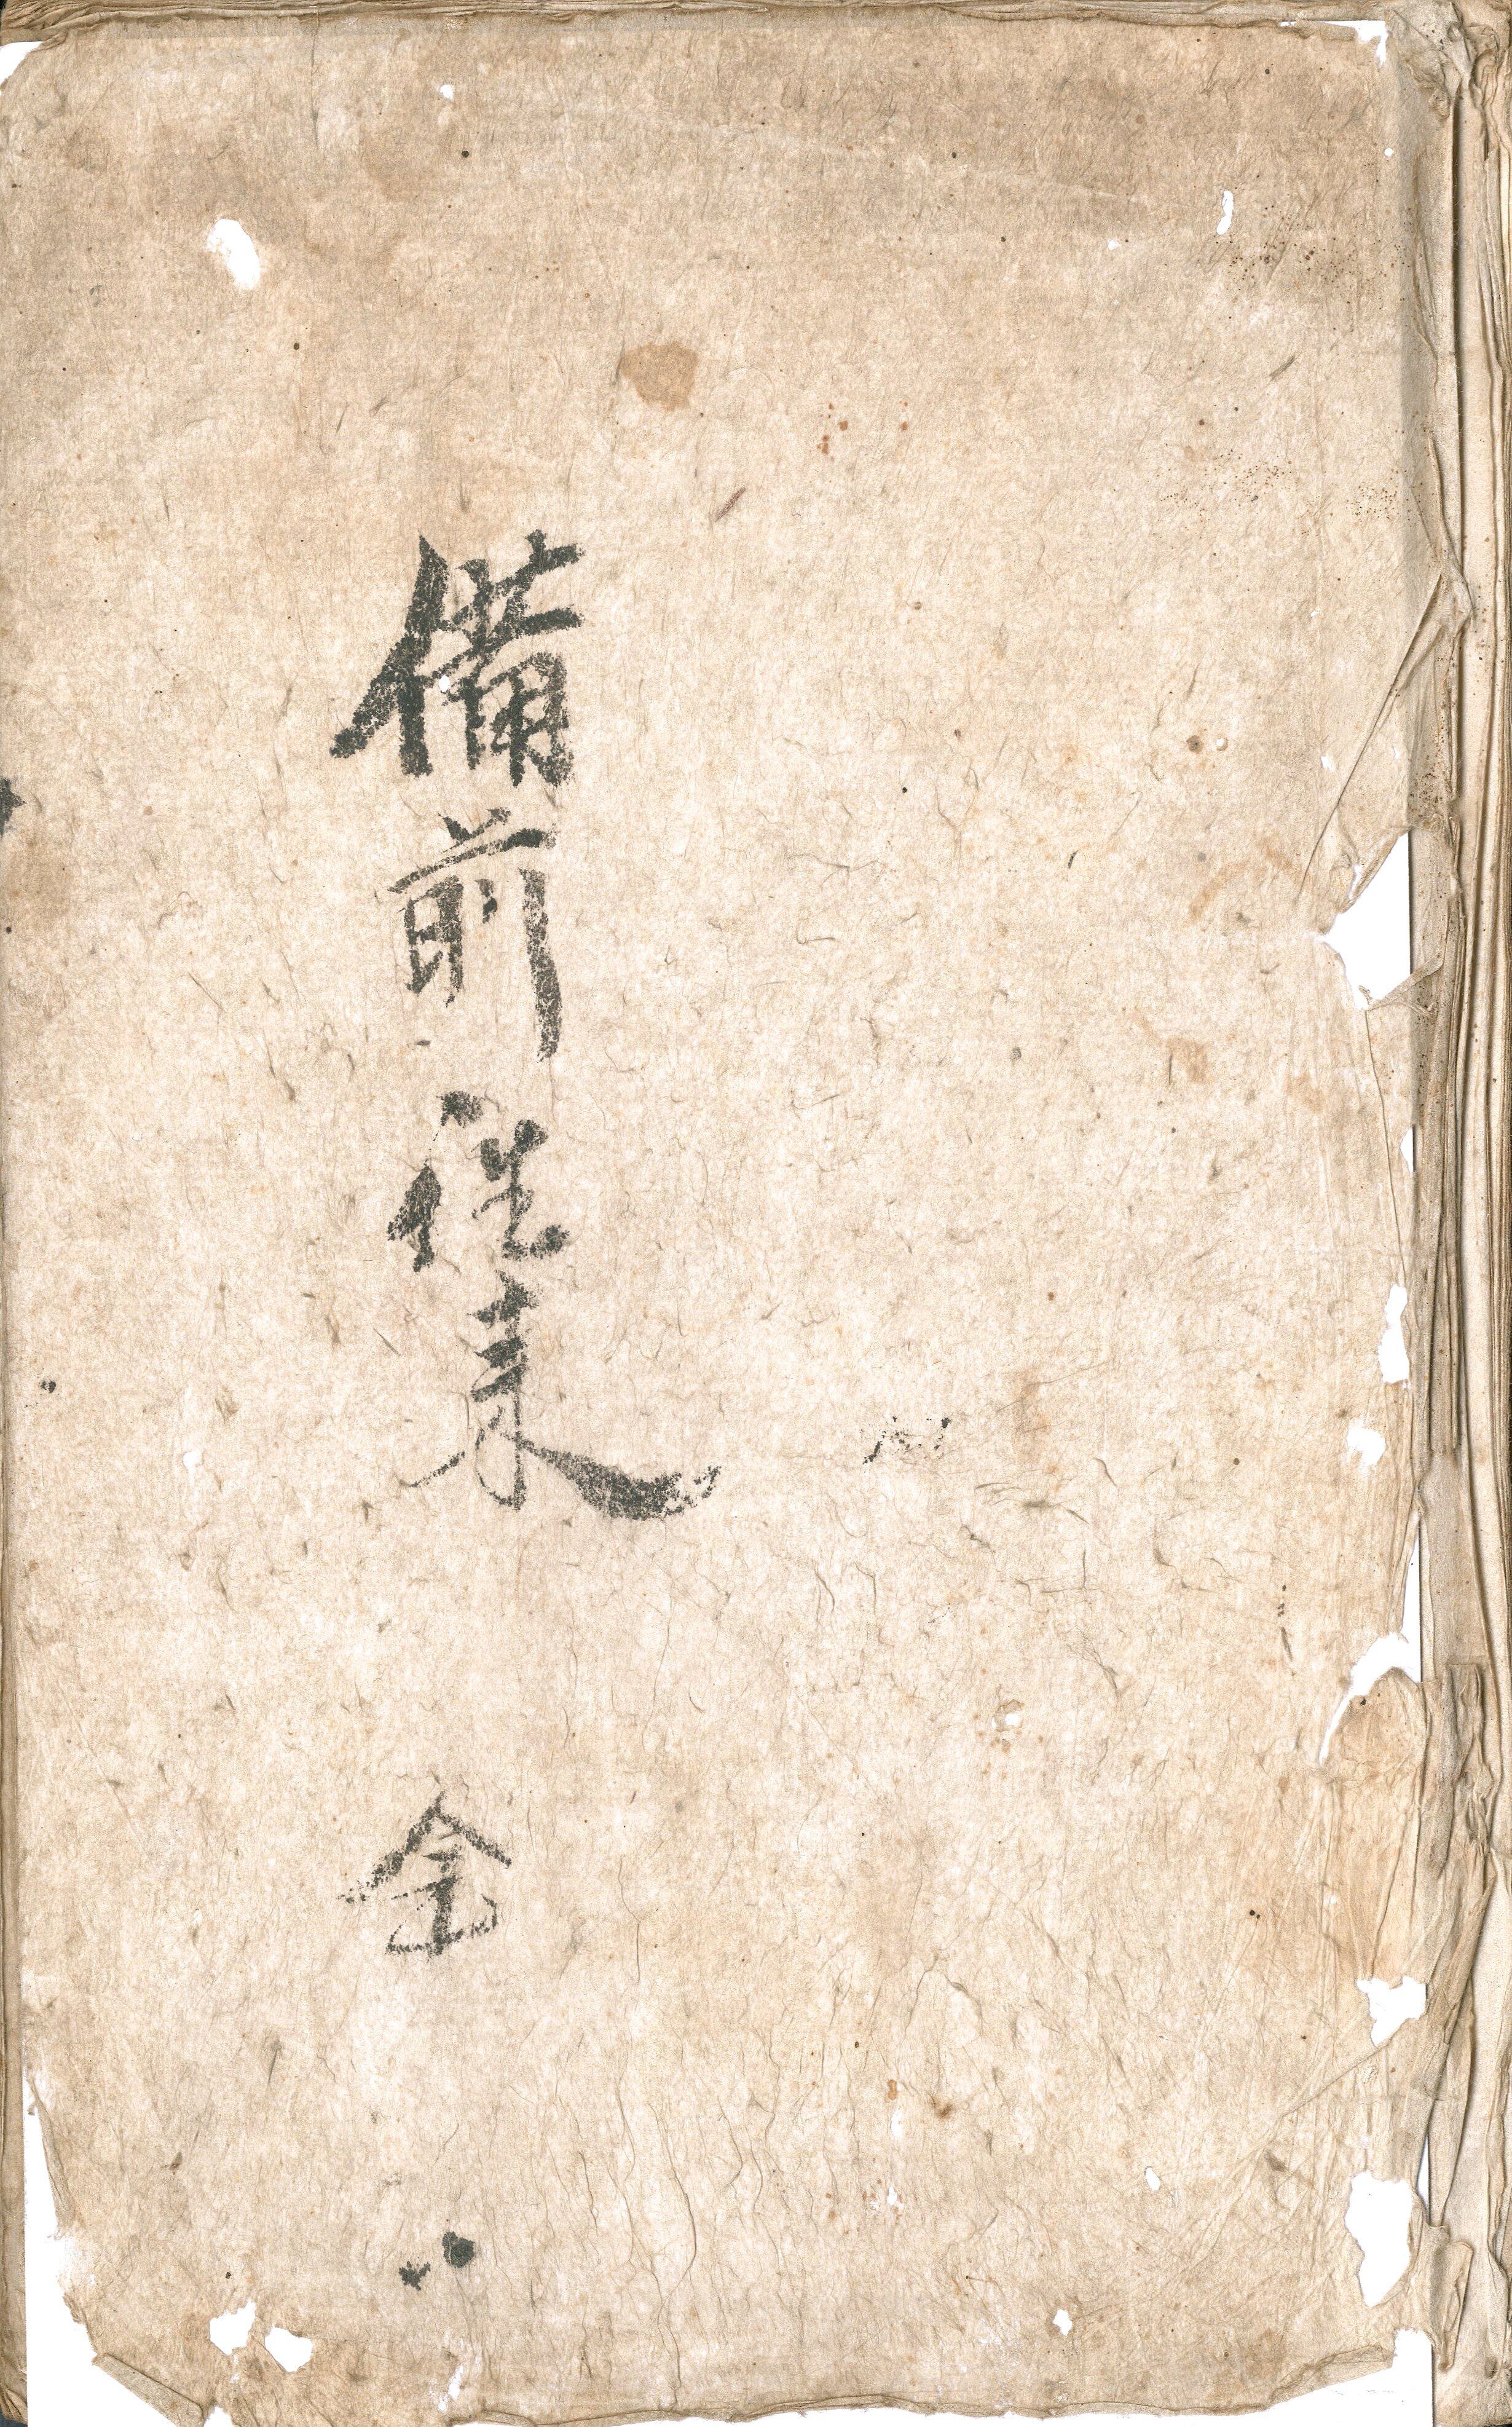 備前往来
全